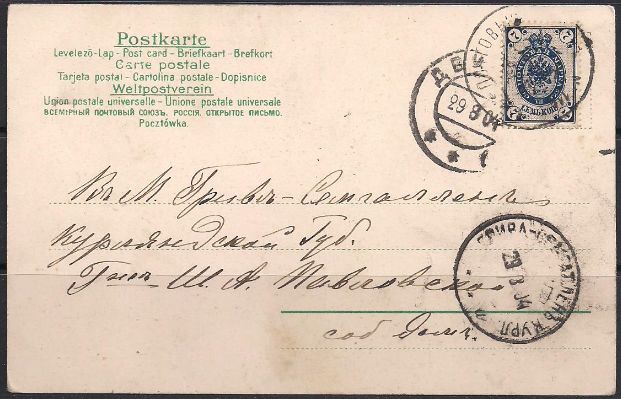 Postkarte
Levelező-Lap - Post card - Briefkaart - Brefkort
Carte postale
Tarjeta postal - Cartolina postale - Dopisnice
Weltpostverein
Union postale universelle - Unione postale universale
ВСЕМІРНЫЙ ПОЧТОВЫЙ СОЮЗЪ. РОССІЯ. ОТКРЫТОЕ ПИСЬМО.
Pocztówka.
7 7
СЕМЬ КОП.
29 8 04
Въ М. Грива-Семгалленъ
Курляндской Губ.
Ш. А. Павловской
соб домъ.
ГРИВА-СЕМГАЛЛЕНЪ КУРЛ.
29 8 04